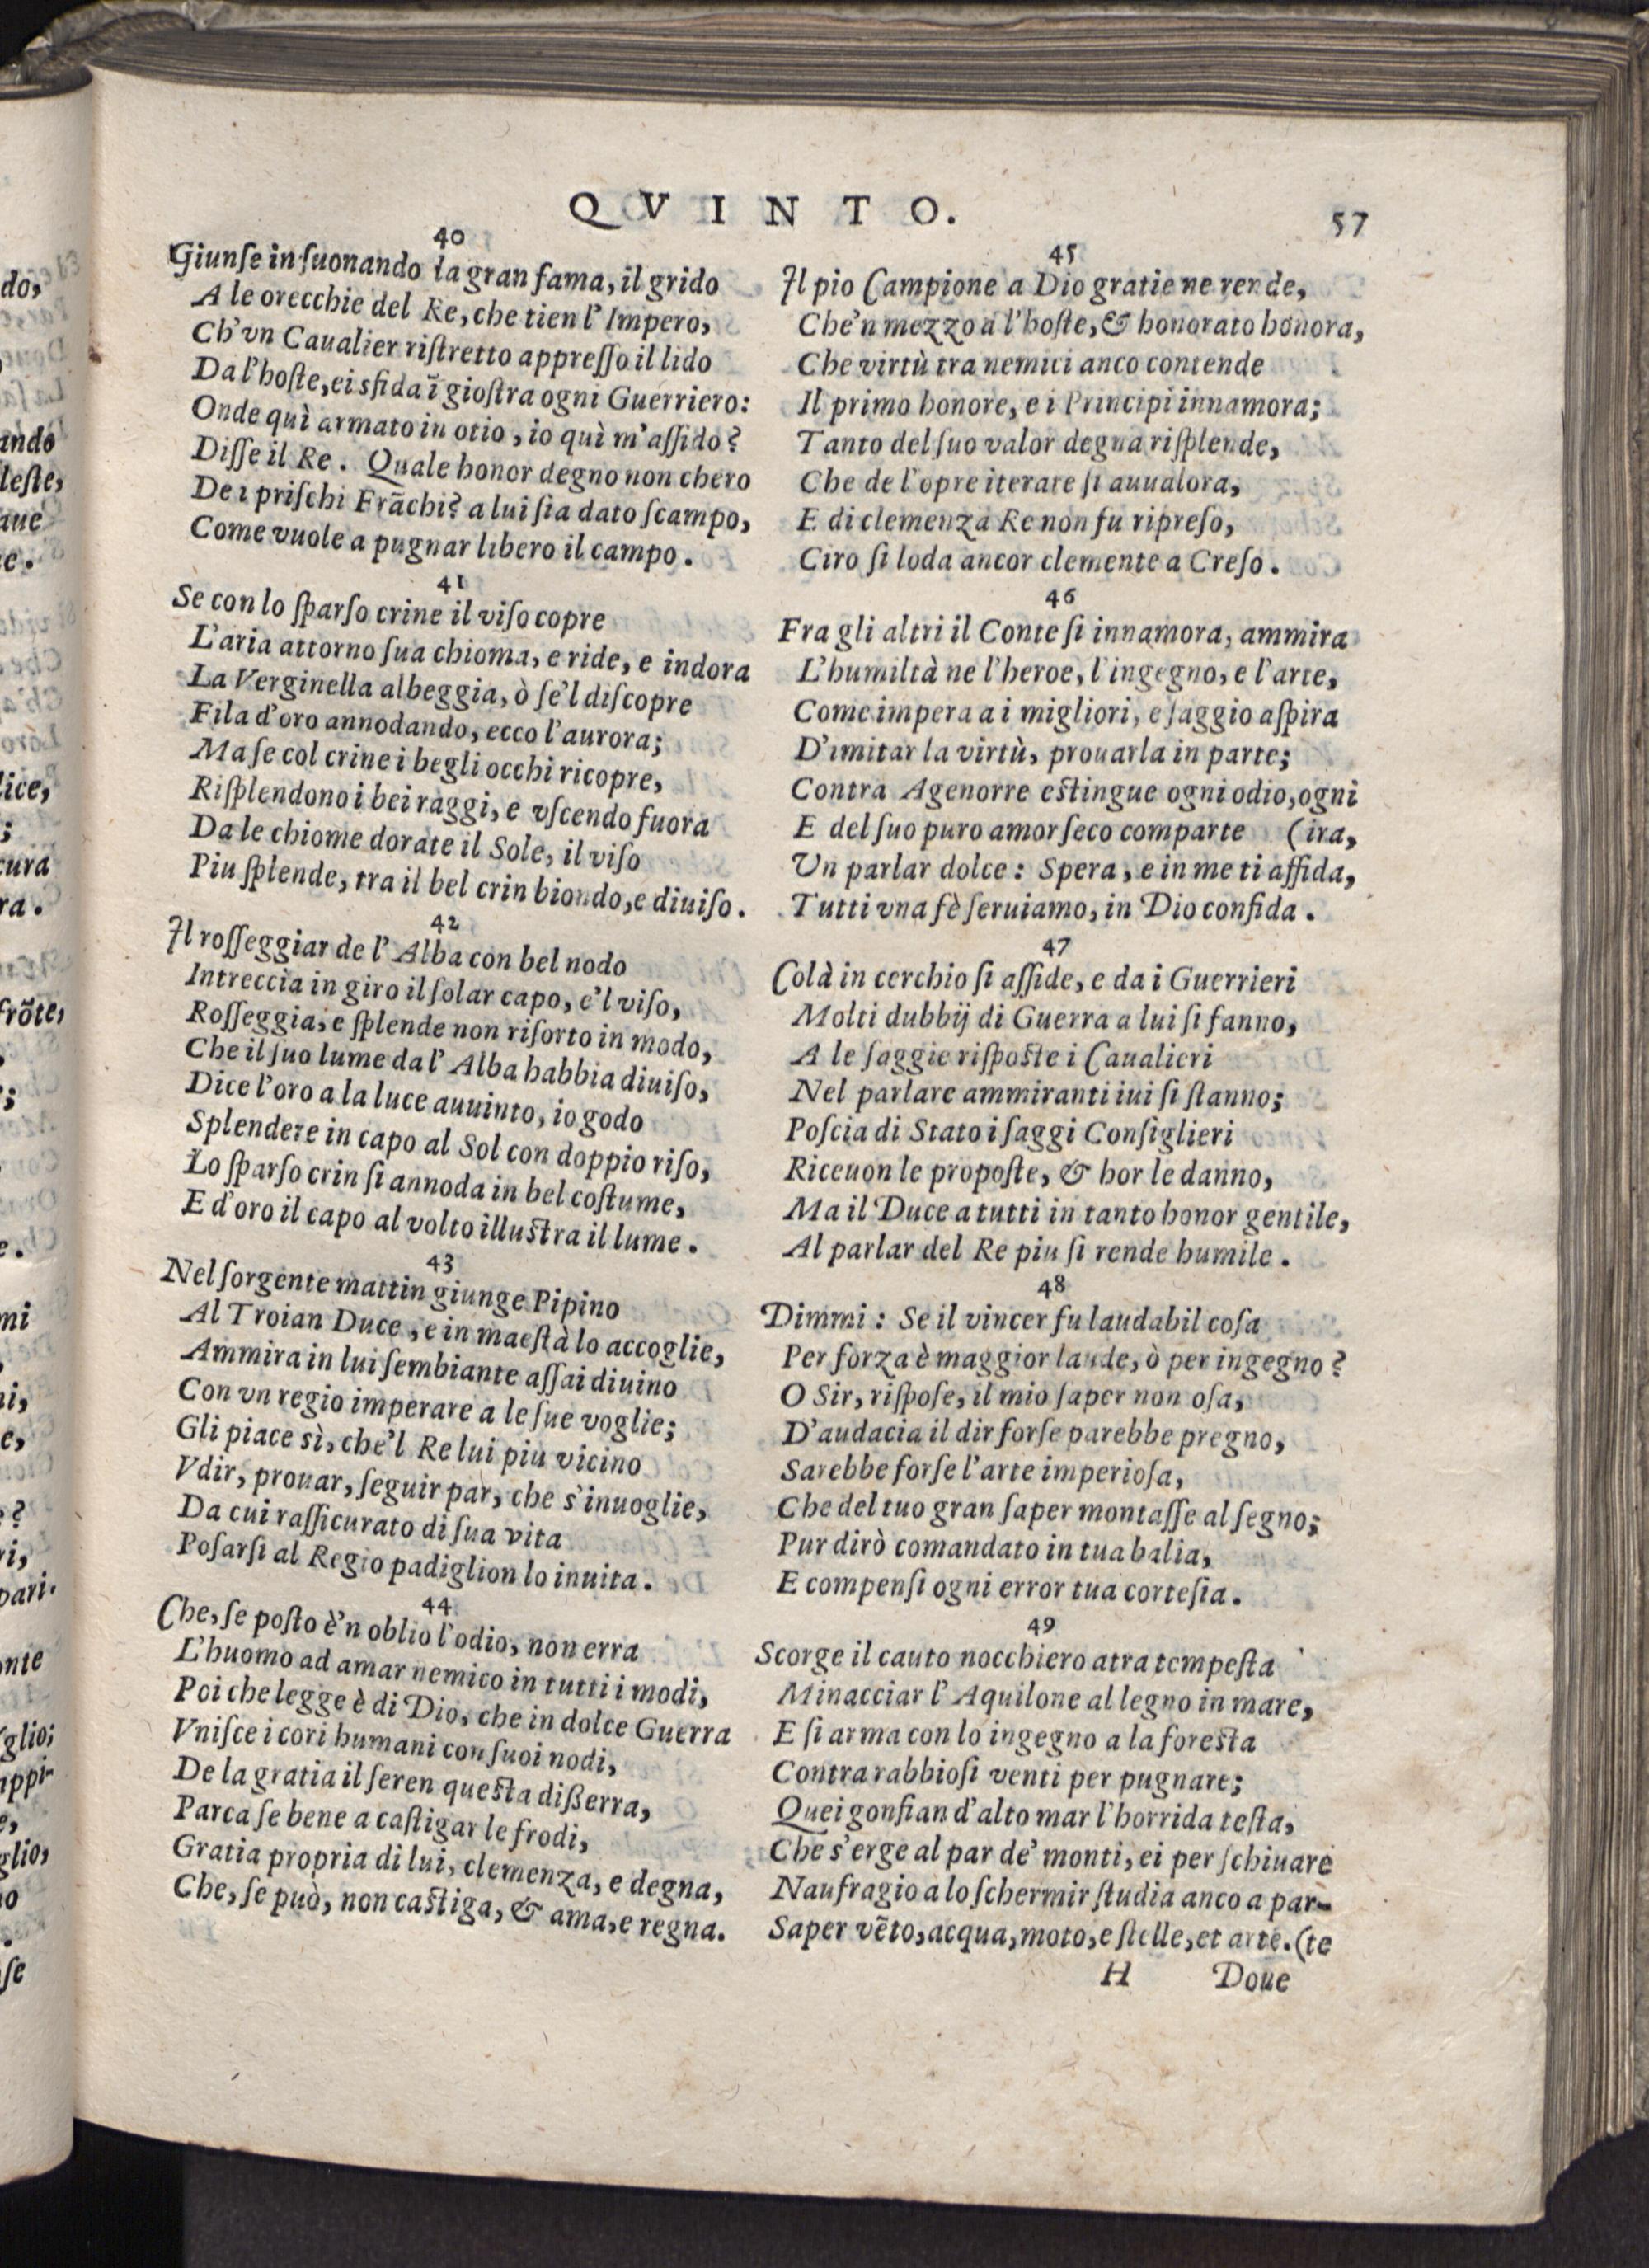 QVINTO.
57
40
Giunſe in ſuonando la gran fama, il grido
A le orecchie del Re, che tien l'Impero,
Ch'vn Caualier riſtretto appreſſo il lido
Da l'hoſte, ei sfida ĩ gioſtra ogni Guerriero:
Onde quì armato in otio, io quì m'aſſido?
Diſſe il Re. Quale honor degno non chero
De i priſchi Frãchi? a lui ſia dato ſcampo,
Come vuole a pugnar libero il campo.
41
Se con lo ſparſo crine il viſo copre
L'aria attorno ſua chioma, e ride, e indora
La Verginella albeggia, ò ſe'l diſcopre
Fila d'oro annodando, ecco l'aurora;
Ma ſe col crine i begli occhi ricopre,
Riſplendono i bei raggi, e vſcendo fuora
Da le chiome dorate il Sole, il viſo
Piu ſplende, tra il bel crin biondo, e diuiſo.
42
Il roſſeggiar de l'Alba con bel nodo
Intreccia in giro il ſolar capo, e'l viſo,
Roſſeggia, e ſplende non riſorto in modo,
Che il ſuo lume da l'Alba habbia diuiſo,
Dice l'oro a la luce auuinto, io godo
Splendere in capo al Sol con doppio riſo,
Lo ſparſo crin ſi annoda in bel coſtume,
E d'oro il capo al volto illuſtra il lume.
43
Nel ſorgente mattin giunge Pipino
Al Troian Duce, e in maeſtà lo accoglie,
Ammira in lui ſembiante aſſai diuino
Con vn regio imperare a le ſue voglie;
Gli piace sì, che'l Re lui piu vicino
Vdir, prouar, ſeguir par, che s'inuoglie,
Da cui raſſicurato di ſua vita
Poſarſi al Regio padiglion lo inuita.
44
Che, ſe poſto è'n oblio l'odio, non erra
L'huomo ad amar nemico in tutti i modi,
Poi che legge è di Dio, che in dolce Guerra
Vniſce i cori humani con ſuoi nodi,
De la gratia il ſeren queſta diſſerra,
Parca ſe bene a caſtigar le frodi,
Gratia propria di lui, clemenza, e degna,
Che, ſe può, non caſtiga, & ama, e regna.
45
Il pio Campione a Dio gratie ne rende,
Che'n mezzo a l'hoſte, & honorato honora,
Che virtù tra nemici anco contende
Il primo honore, e i Principi innamora;
Tanto del ſuo valor degna riſplende,
Che de l'opre iterare ſi auualora,
E di clemenza Re non fu ripreſo,
Ciro ſi loda ancor clemente a Creſo.
46
Fra gli altri il Conte ſi innamora, ammira
L'humiltà ne l'heroe, l'ingegno, e l'arte,
Come impera a i migliori, e ſaggio aſpira
D'imitar la virtù, prouarla in parte;
Contra Agenorre eſtingue ogni odio, ogni
E del ſuo puro amor ſeco comparte (ira,
Un parlar dolce: Spera, e in me ti affida,
Tutti vna fè ſeruiamo, in Dio confida.
47
Colà in cerchio ſi aſſide, e da i Guerrieri
Molti dubbij di Guerra a lui ſi fanno,
A le ſaggie riſpoſte i Caualieri
Nel parlare ammiranti iui ſi ſtanno;
Poſcia di Stato i ſaggi Conſiglieri
Riceuon le propoſte, & hor le danno,
Ma il Duce a tutti in tanto honor gentile,
Al parlar del Re piu ſi rende humile.
48
Dimmi: Se il vincer fu laudabil coſa
Per forza è maggior laude, ò per ingegno?
O Sir, riſpoſe, il mio ſaper non oſa,
D'audacia il dir forſe parebbe pregno,
Sarebbe forſe l'arte imperioſa,
Che del tuo gran ſaper montaſſe al ſegno;
Pur dirò comandato in tua balia,
E compenſi ogni error tua corteſia.
49
Scorge il cauto nocchiero atra tempeſta
Minacciar l'Aquilone al legno in mare,
E ſi arma con lo ingegno a la foreſta
Contra rabbioſi venti per pugnare;
Quei gonfian d'alto mar l'horrida teſta,
Che s'erge al par de' monti, ei per ſchiuare
Naufragio a lo ſchermir ſtudia anco a par-
Saper vẽto, acqua, moto, e ſtelle, et arte. (te
H Doue